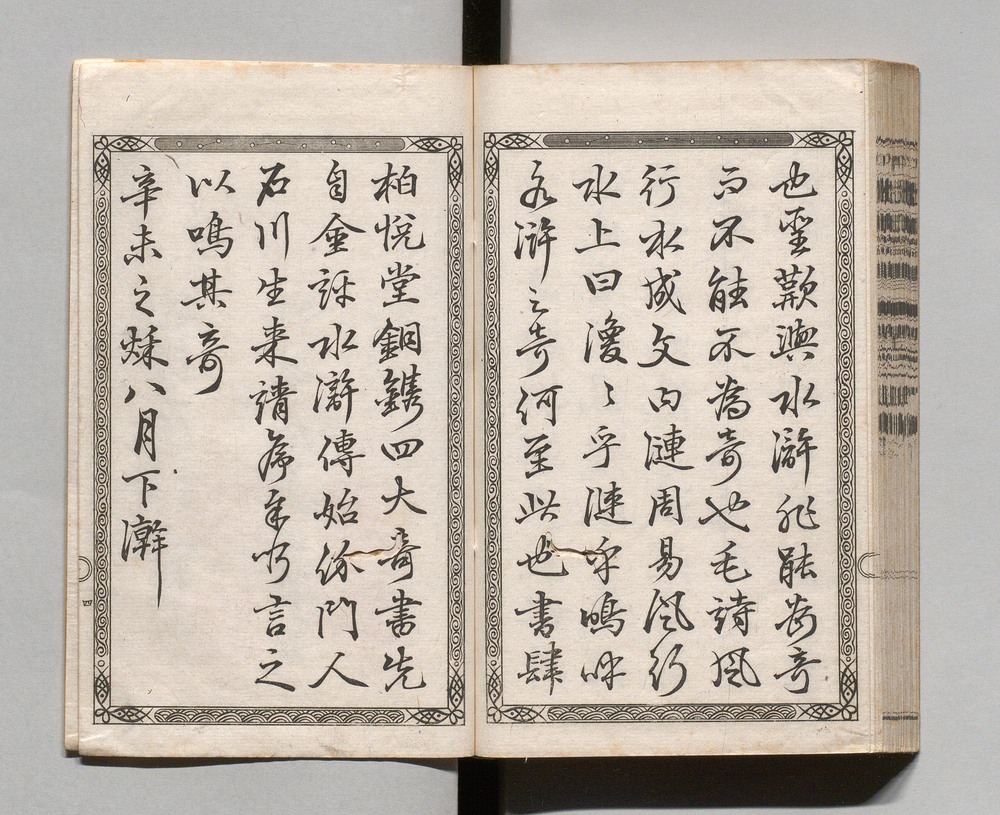 也聖歎與水滸非能為奇
而不能不為奇也毛詩風
行水成文曰漣周易風行
水上曰渙〻乎漣乎嗚呼
水滸之奇何至此也書肆
柏悅堂銅鐫四大奇書先
自金評水滸傳始係門人
石川生来請序余乃言之
以鳴其奇
辛未之秌八月下澣
四